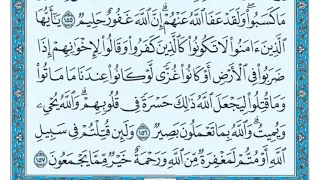 مَا كَسَبُوا۟ ۖ وَلَقَدْ عَفَا ٱللَّهُ عَنْهُمْ ۗ إِنَّ ٱللَّهَ غَفُورٌ حَلِيمٌ ١٥٥ يَـٰٓأَيُّهَا
ٱلَّذِينَ ءَامَنُوا۟ لَا تَكُونُوا۟ كَٱلَّذِينَ كَفَرُوا۟ وَقَالُوا۟ لِإِخْوَٰنِهِمْ إِذَا
ضَرَبُوا۟ فِى ٱلْأَرْضِ أَوْ كَانُوا۟ غُزًّى لَّوْ كَانُوا۟ عِندَنَا مَا مَاتُوا۟
وَمَا قُتِلُوا۟ لِيَجْعَلَ ٱللَّهُ ذَٰلِكَ حَسْرَةً فِى قُلُوبِهِمْ ۗ وَٱللَّهُ يُحْىِۦ
وَيُمِيتُ ۗ وَٱللَّهُ بِمَا تَعْمَلُونَ بَصِيرٌ ١٥٦ وَلَئِن قُتِلْتُمْ فِى سَبِيلِ
ٱللَّهِ أَوْ مُتُّمْ لَمَغْفِرَةٌ مِّنَ ٱللَّهِ وَرَحْمَةٌ خَيْرٌ مِّمَّا يَجْمَعُونَ ١٥٧